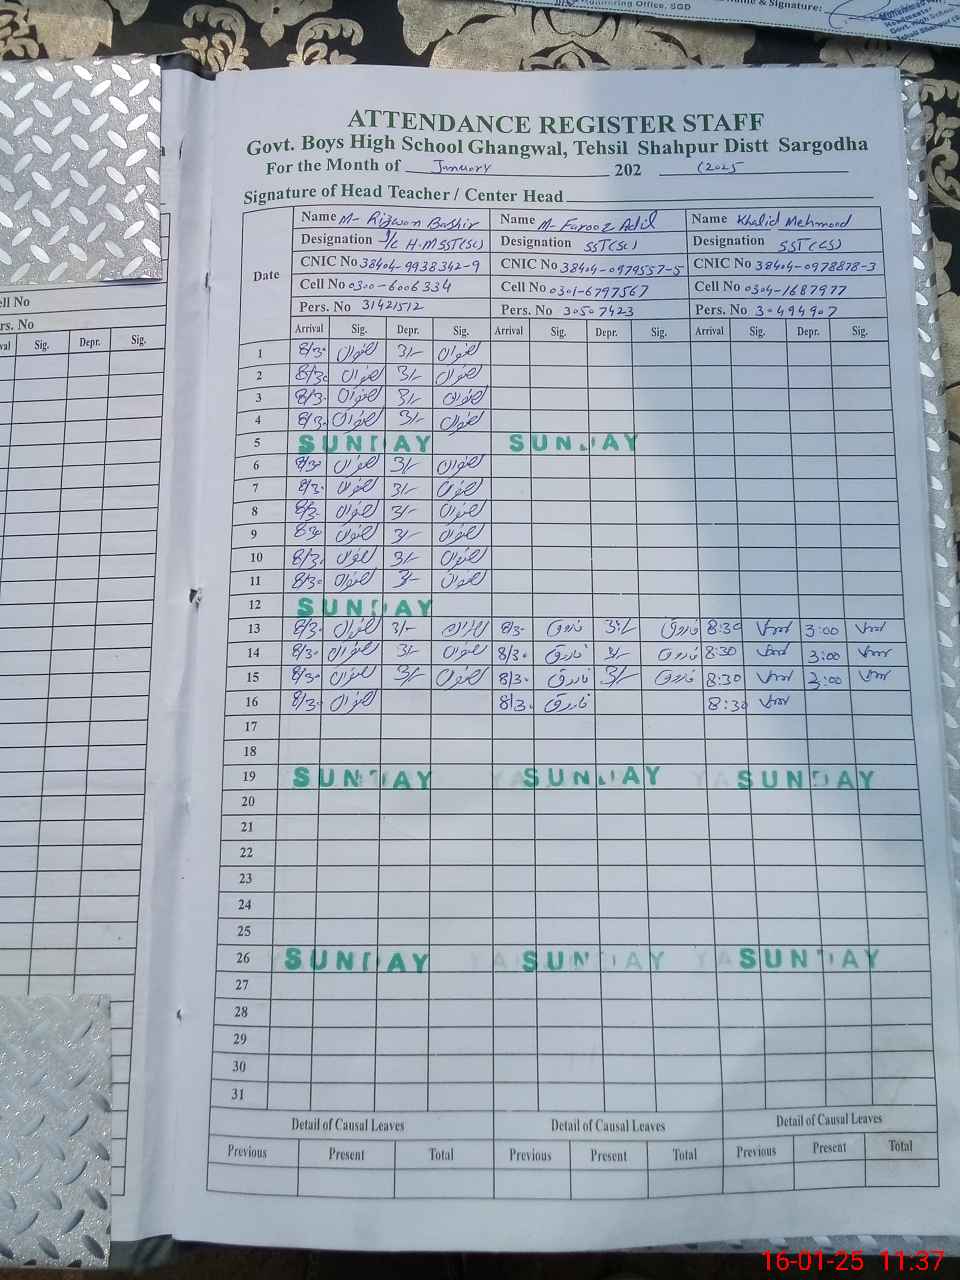 Monitoring Office, SGD
& Signature:
ATTENDANCE REGISTER STAFF
Govt. Boys High School Ghangwal, Tehsil Shahpur Distt Sargodha
For the Month of January 202 (2025
Signature of Head Teacher / Center Head
Date
Name M- Rizwan Bashir Name M- Farooz Adil Name Khalid Mehmood
Designation I/C H.M SST(Sc) Designation SST(Sc) Designation SST(CS)
CNIC No 38404-9938342-9 CNIC No 38404-0979557-5 CNIC No 38404-0978878-3
Cell No 0300-6006334 Cell No 0301-6797567 Cell No 0304-1687977
Pers. No 31421512 Pers. No 30507423 Pers. No 30494907
Arrival Sig. Depr. Sig. Arrival Sig. Depr. Sig. Arrival Sig. Depr. Sig.
1 8/30 رضوان 3/- رضوان
2 8/30 رضوان 3/- رضوان
3 8/30 رضوان 3/- رضوان
4 8/30 رضوان 3/- رضوان
5 SUNDAY SUNDAY
6 8/30 رضوان 3/- رضوان
7 8/30 رضوان 3/- رضوان
8 8/30 رضوان 3/- رضوان
9 8/30 رضوان 3/- رضوان
10 8/30 رضوان 3/- رضوان
11 8/30 رضوان 3/- رضوان
12 SUNDAY
13 8/30 رضوان 3/- رضوان 8/30 فاروق 3/- فاروق 8:30 3:00
14 8/30 رضوان 3/- رضوان 8/30 فاروق 3/- فاروق 8:30 3:00
15 8/30 رضوان 3/- رضوان 8/30 فاروق 3/- فاروق 8:30 3:00
16 8/30 رضوان 8/30 فاروق 8:30
17
18
19 SUNDAY SUNDAY SUNDAY
20
21
22
23
24
25
26 SUNDAY SUNDAY SUNDAY
27
28
29
30
31
Detail of Causal Leaves Detail of Causal Leaves Detail of Causal Leaves
Previous Present Total Previous Present Total Previous Present Total
ell No
rs. No
val Sig. Depr. Sig.
16-01-25 11:37